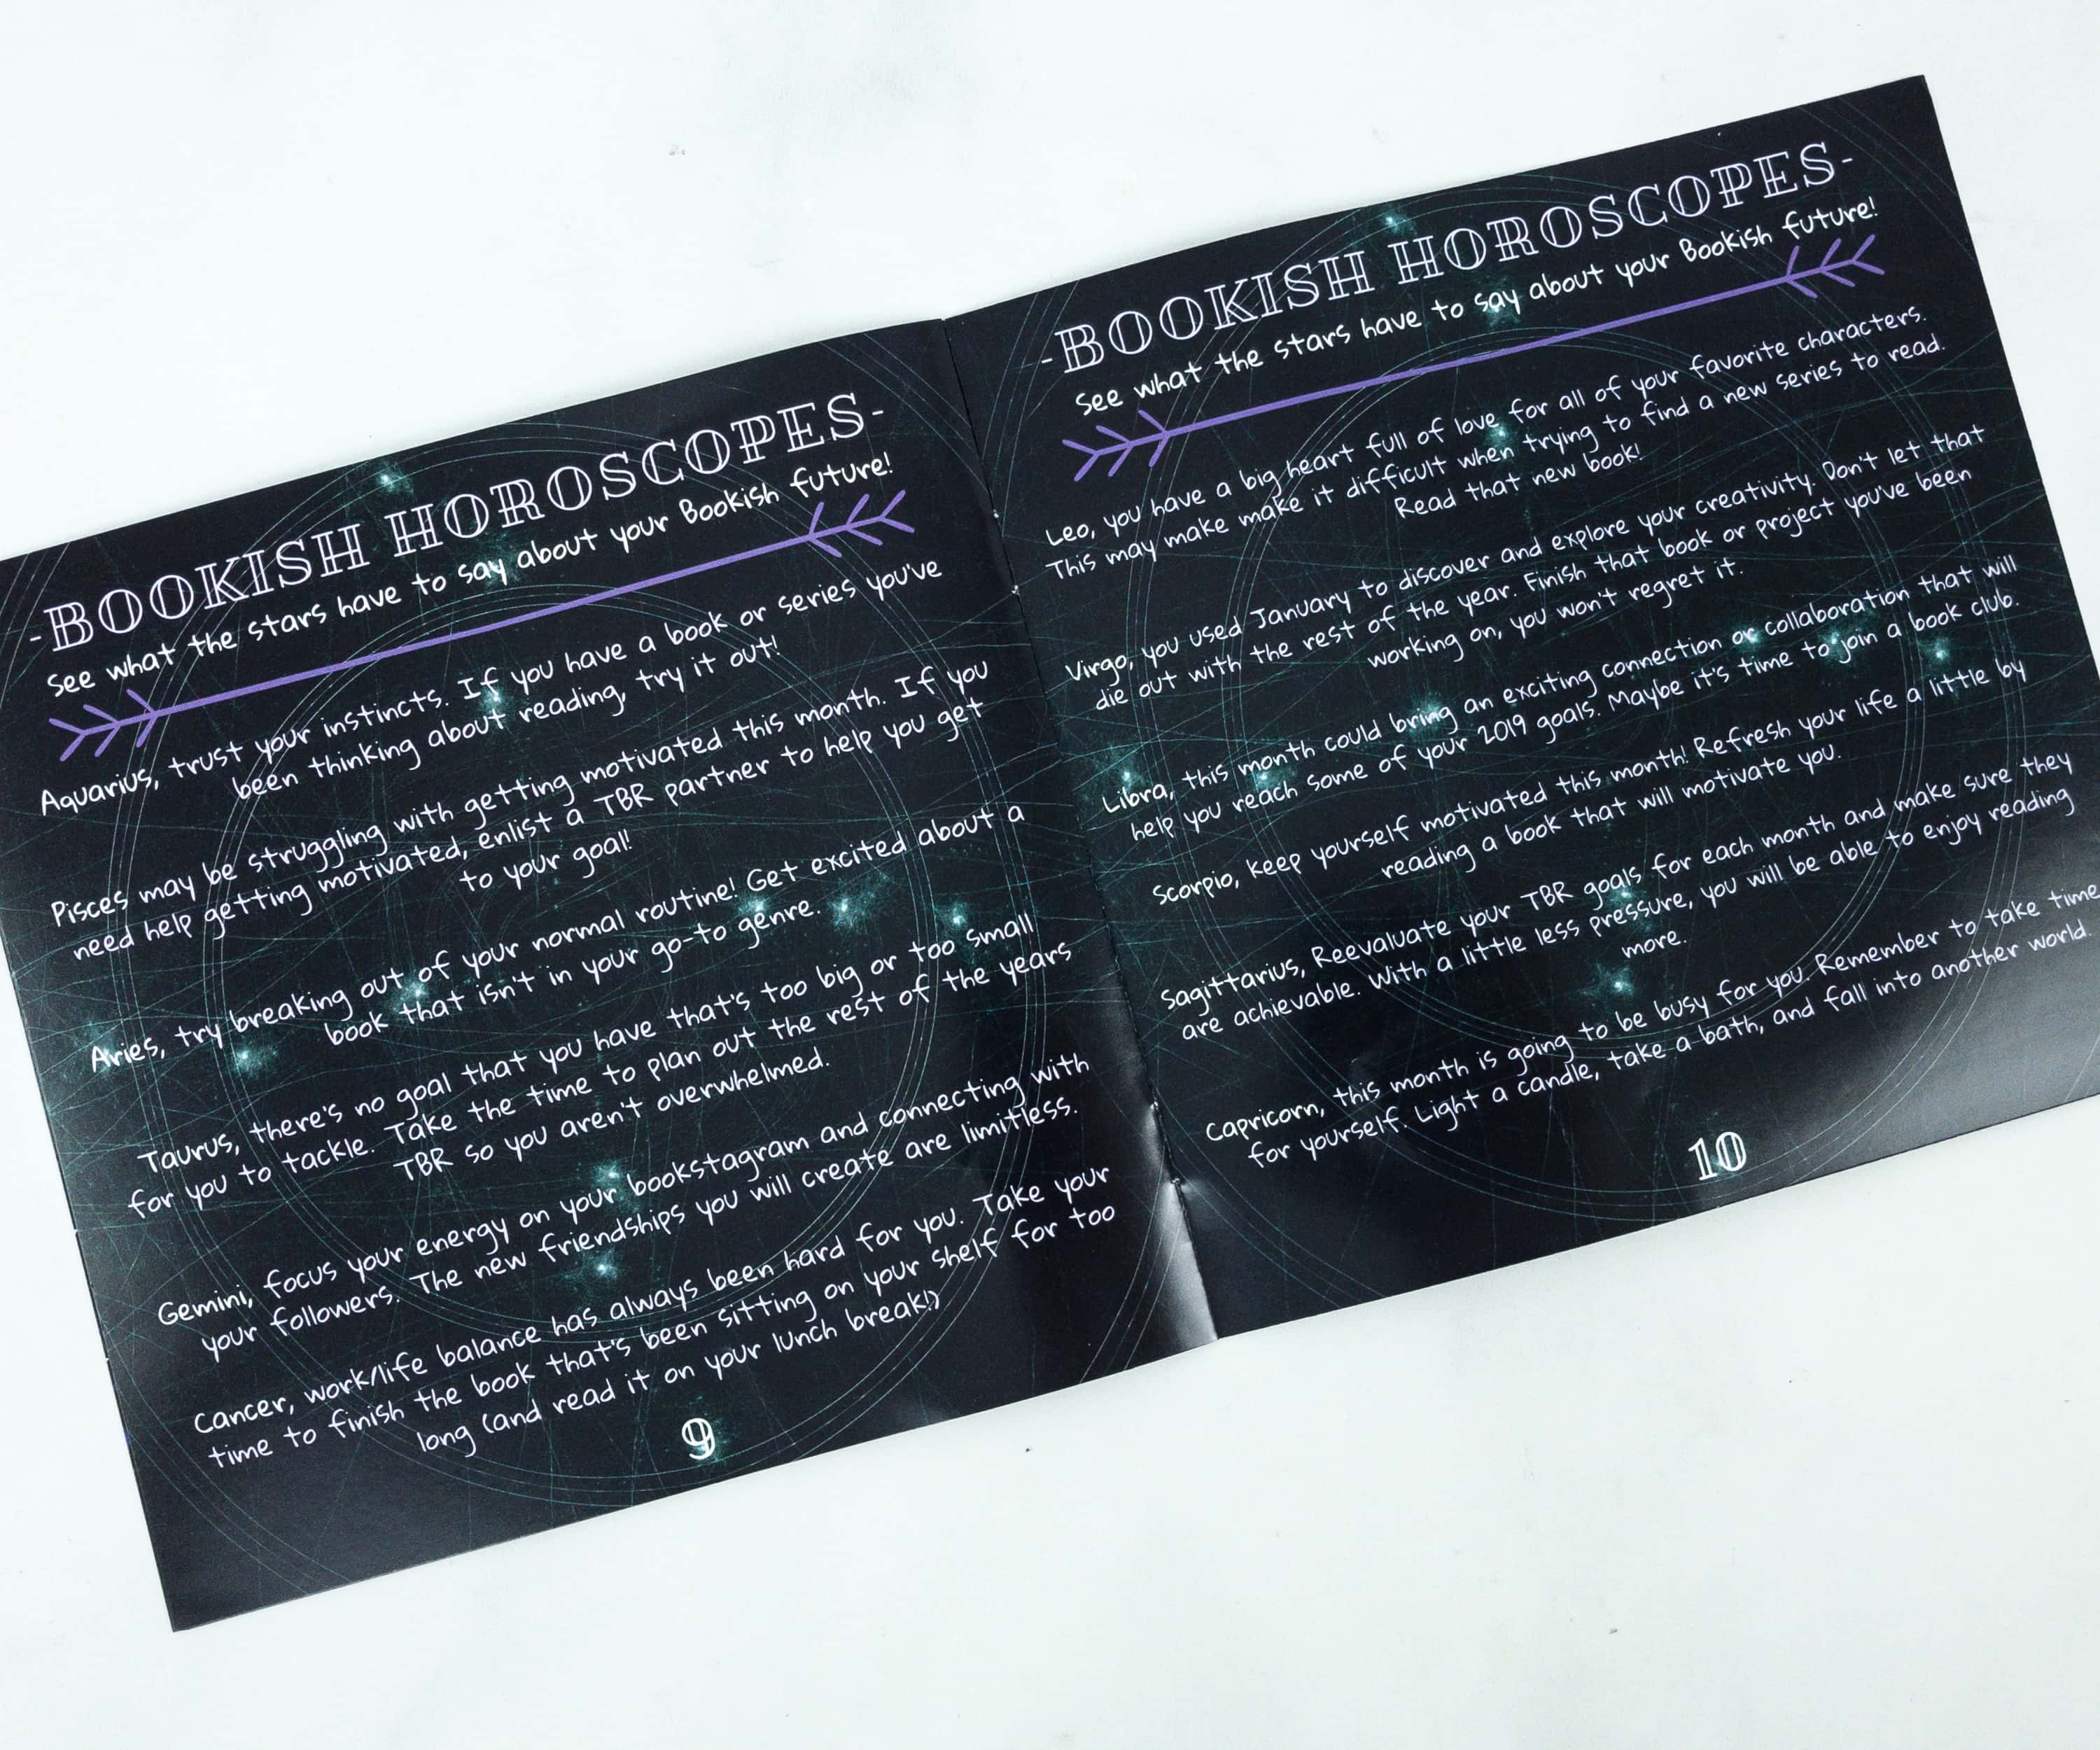 -BOOKISH HOROSCOPES-
See what the stars have to say about your Bookish future!
Aquarius, trust your instincts. If you have a book or series you've
been thinking about reading, try it out!
Pisces may be struggling with getting motivated this month. If you
need help getting motivated, enlist a TBR partner to help you get
to your goal!
Aries, try breaking out of your normal routine! Get excited about a
book that isn't in your go-to genre.
Taurus, there's no goal that you have that's too big or too small
for you to tackle. Take the time to plan out the rest of the years
TBR so you aren't overwhelmed.
Gemini, focus your energy on your bookstagram and connecting with
your followers. The new friendships you will create are limitless.
Cancer, work/life balance has always been hard for you. Take your
time to finish the book that's been sitting on your shelf for too
long (and read it on your lunch break!)
9
-BOOKISH HOROSCOPES-
See what the stars have to say about your Bookish future!
Leo, you have a big heart full of love for all of your favorite characters.
This may make make it difficult when trying to find a new series to read.
Read that new book!
Virgo, you used January to discover and explore your creativity. Don't let that
die out with the rest of the year. Finish that book or project you've been
working on, you won't regret it.
Libra, this month could bring an exciting connection or collaboration that will
help you reach some of your 2019 goals. Maybe it's time to join a book club.
Scorpio, keep yourself motivated this month! Refresh your life a little by
reading a book that will motivate you.
Sagittarius, Reevaluate your TBR goals for each month and make sure they
are achievable. With a little less pressure, you will be able to enjoy reading
more.
Capricorn, this month is going to be busy for you. Remember to take time
for yourself. Light a candle, take a bath, and fall into another world.
10